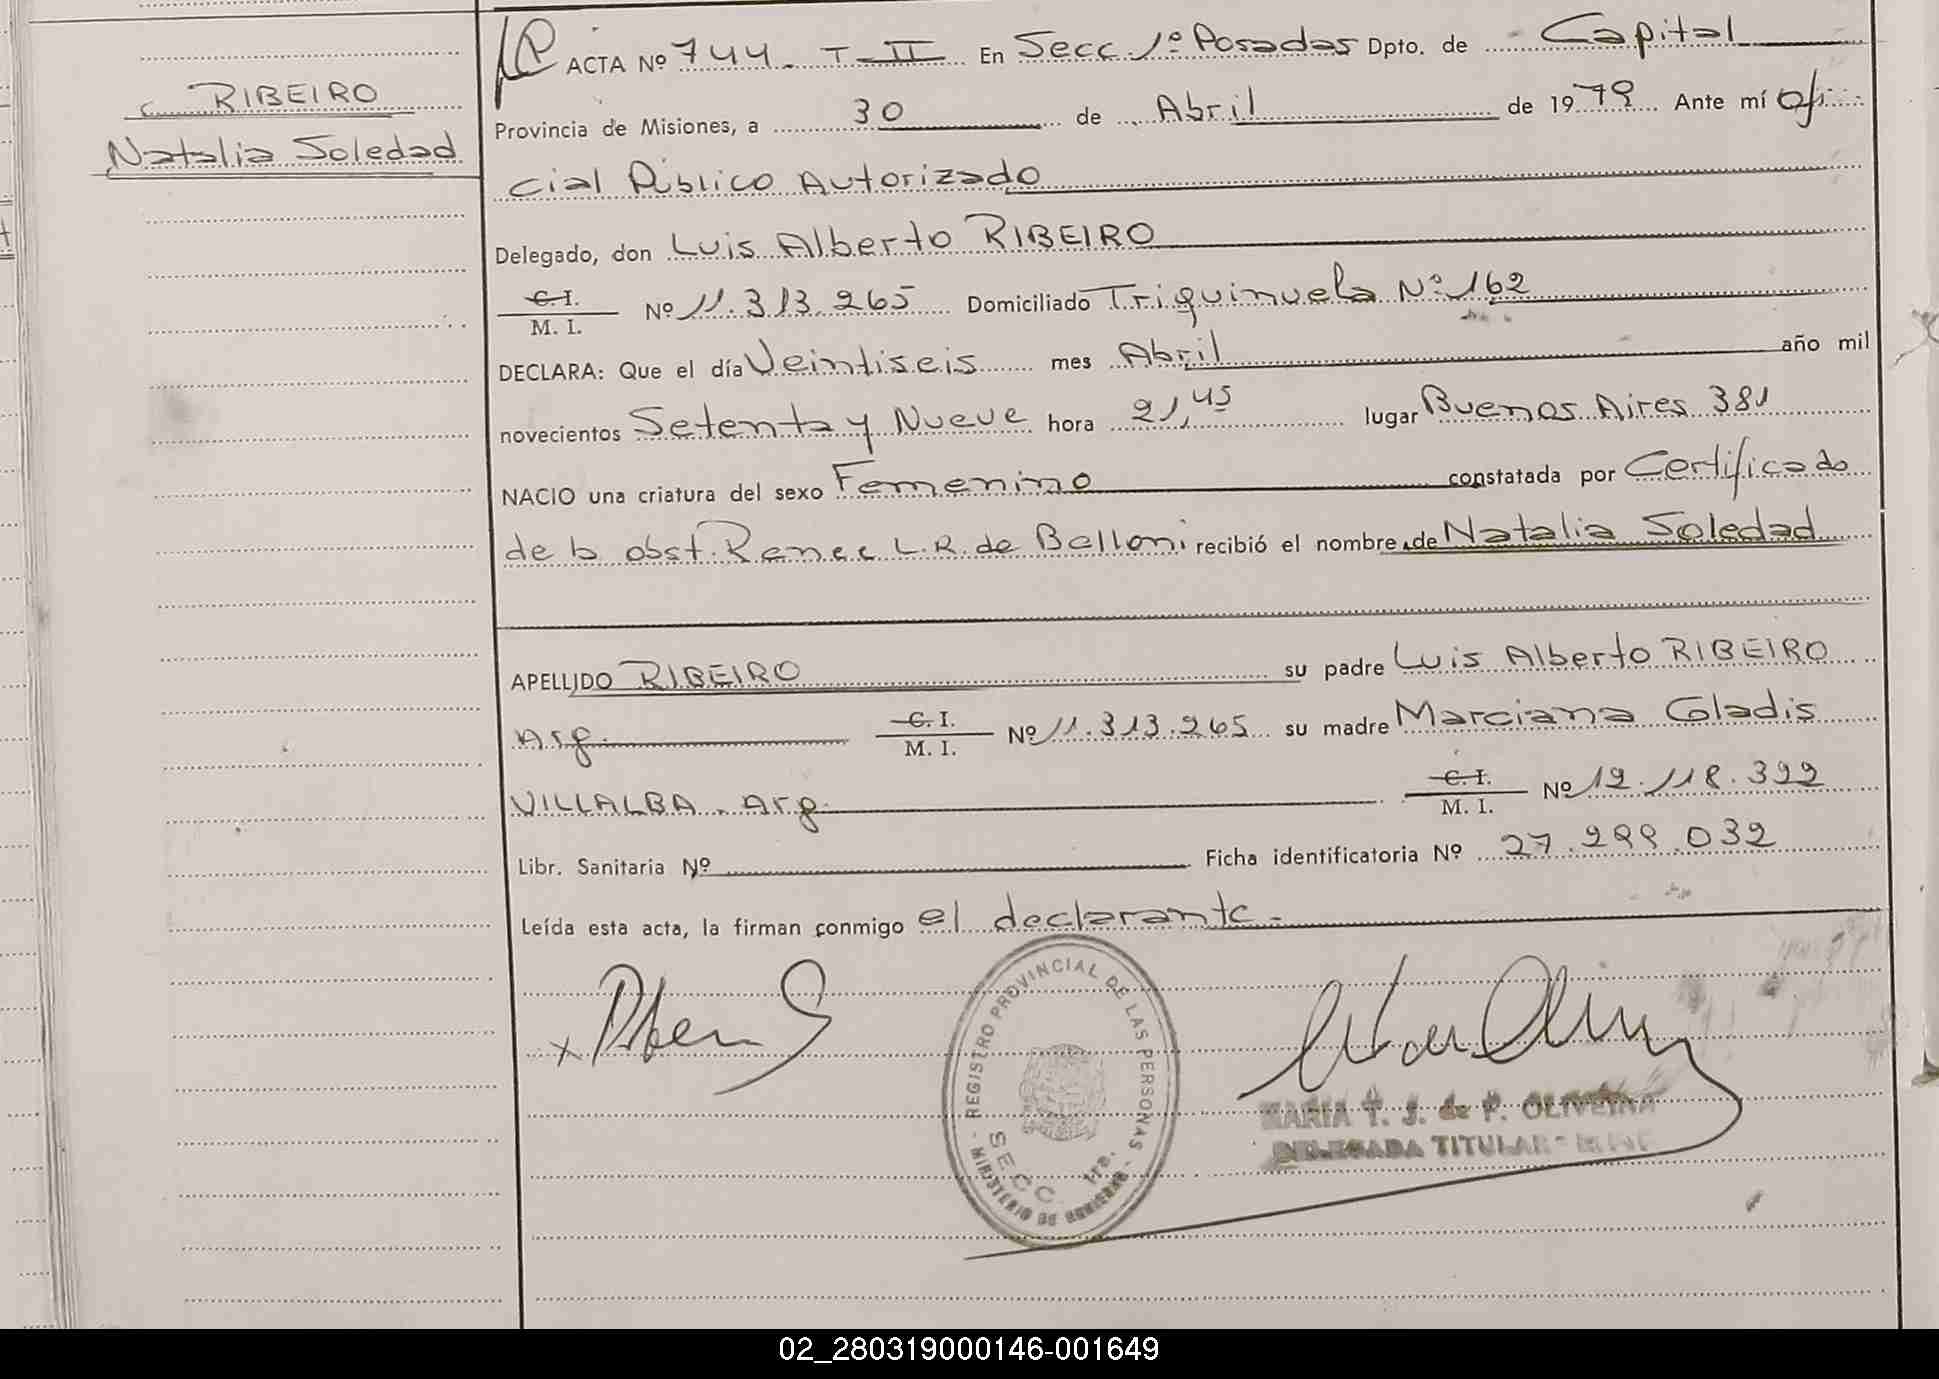 RIBEIRO
Natalia Soledad
ACTA Nº 744. T-II En Secc. 1º Posadas Dpto. de Capital
Provincia de Misiones, a 30 de Abril de 1979 Ante mí Ofi
cial Público Autorizado
Delegado, don Luis Alberto RIBEIRO
C. I.
M. I.
Nº 11.313.265 Domiciliado Triquinuela Nº 162
DECLARA: Que el día Veintiseis mes Abril año mil
novecientos Setenta y Nueve hora 21,45 lugar Buenos Aires 381
NACIO una criatura del sexo Femenino constatada por Certificado
de la obst. Renee L.R. de Belloni recibió el nombre de Natalia Soledad
APELLIDO RIBEIRO su padre Luis Alberto RIBEIRO
Arg. C. I.
M. I.
Nº 11.313.265 su madre Marciana Gladis
VILLALBA. Arg. C. I.
M. I.
Nº 12.118.392
Libr. Sanitaria Nº Ficha identificatoria Nº 27.299.032
Leída esta acta, la firman conmigo el declarante.-
REGISTRO PROVINCIAL DE LAS PERSONAS
MINISTERIO DE GOBIERNO
SECC. 1ra.
MARIA T. J. de P. OLIVEIRA
DELEGADA TITULAR
02_280319000146-001649